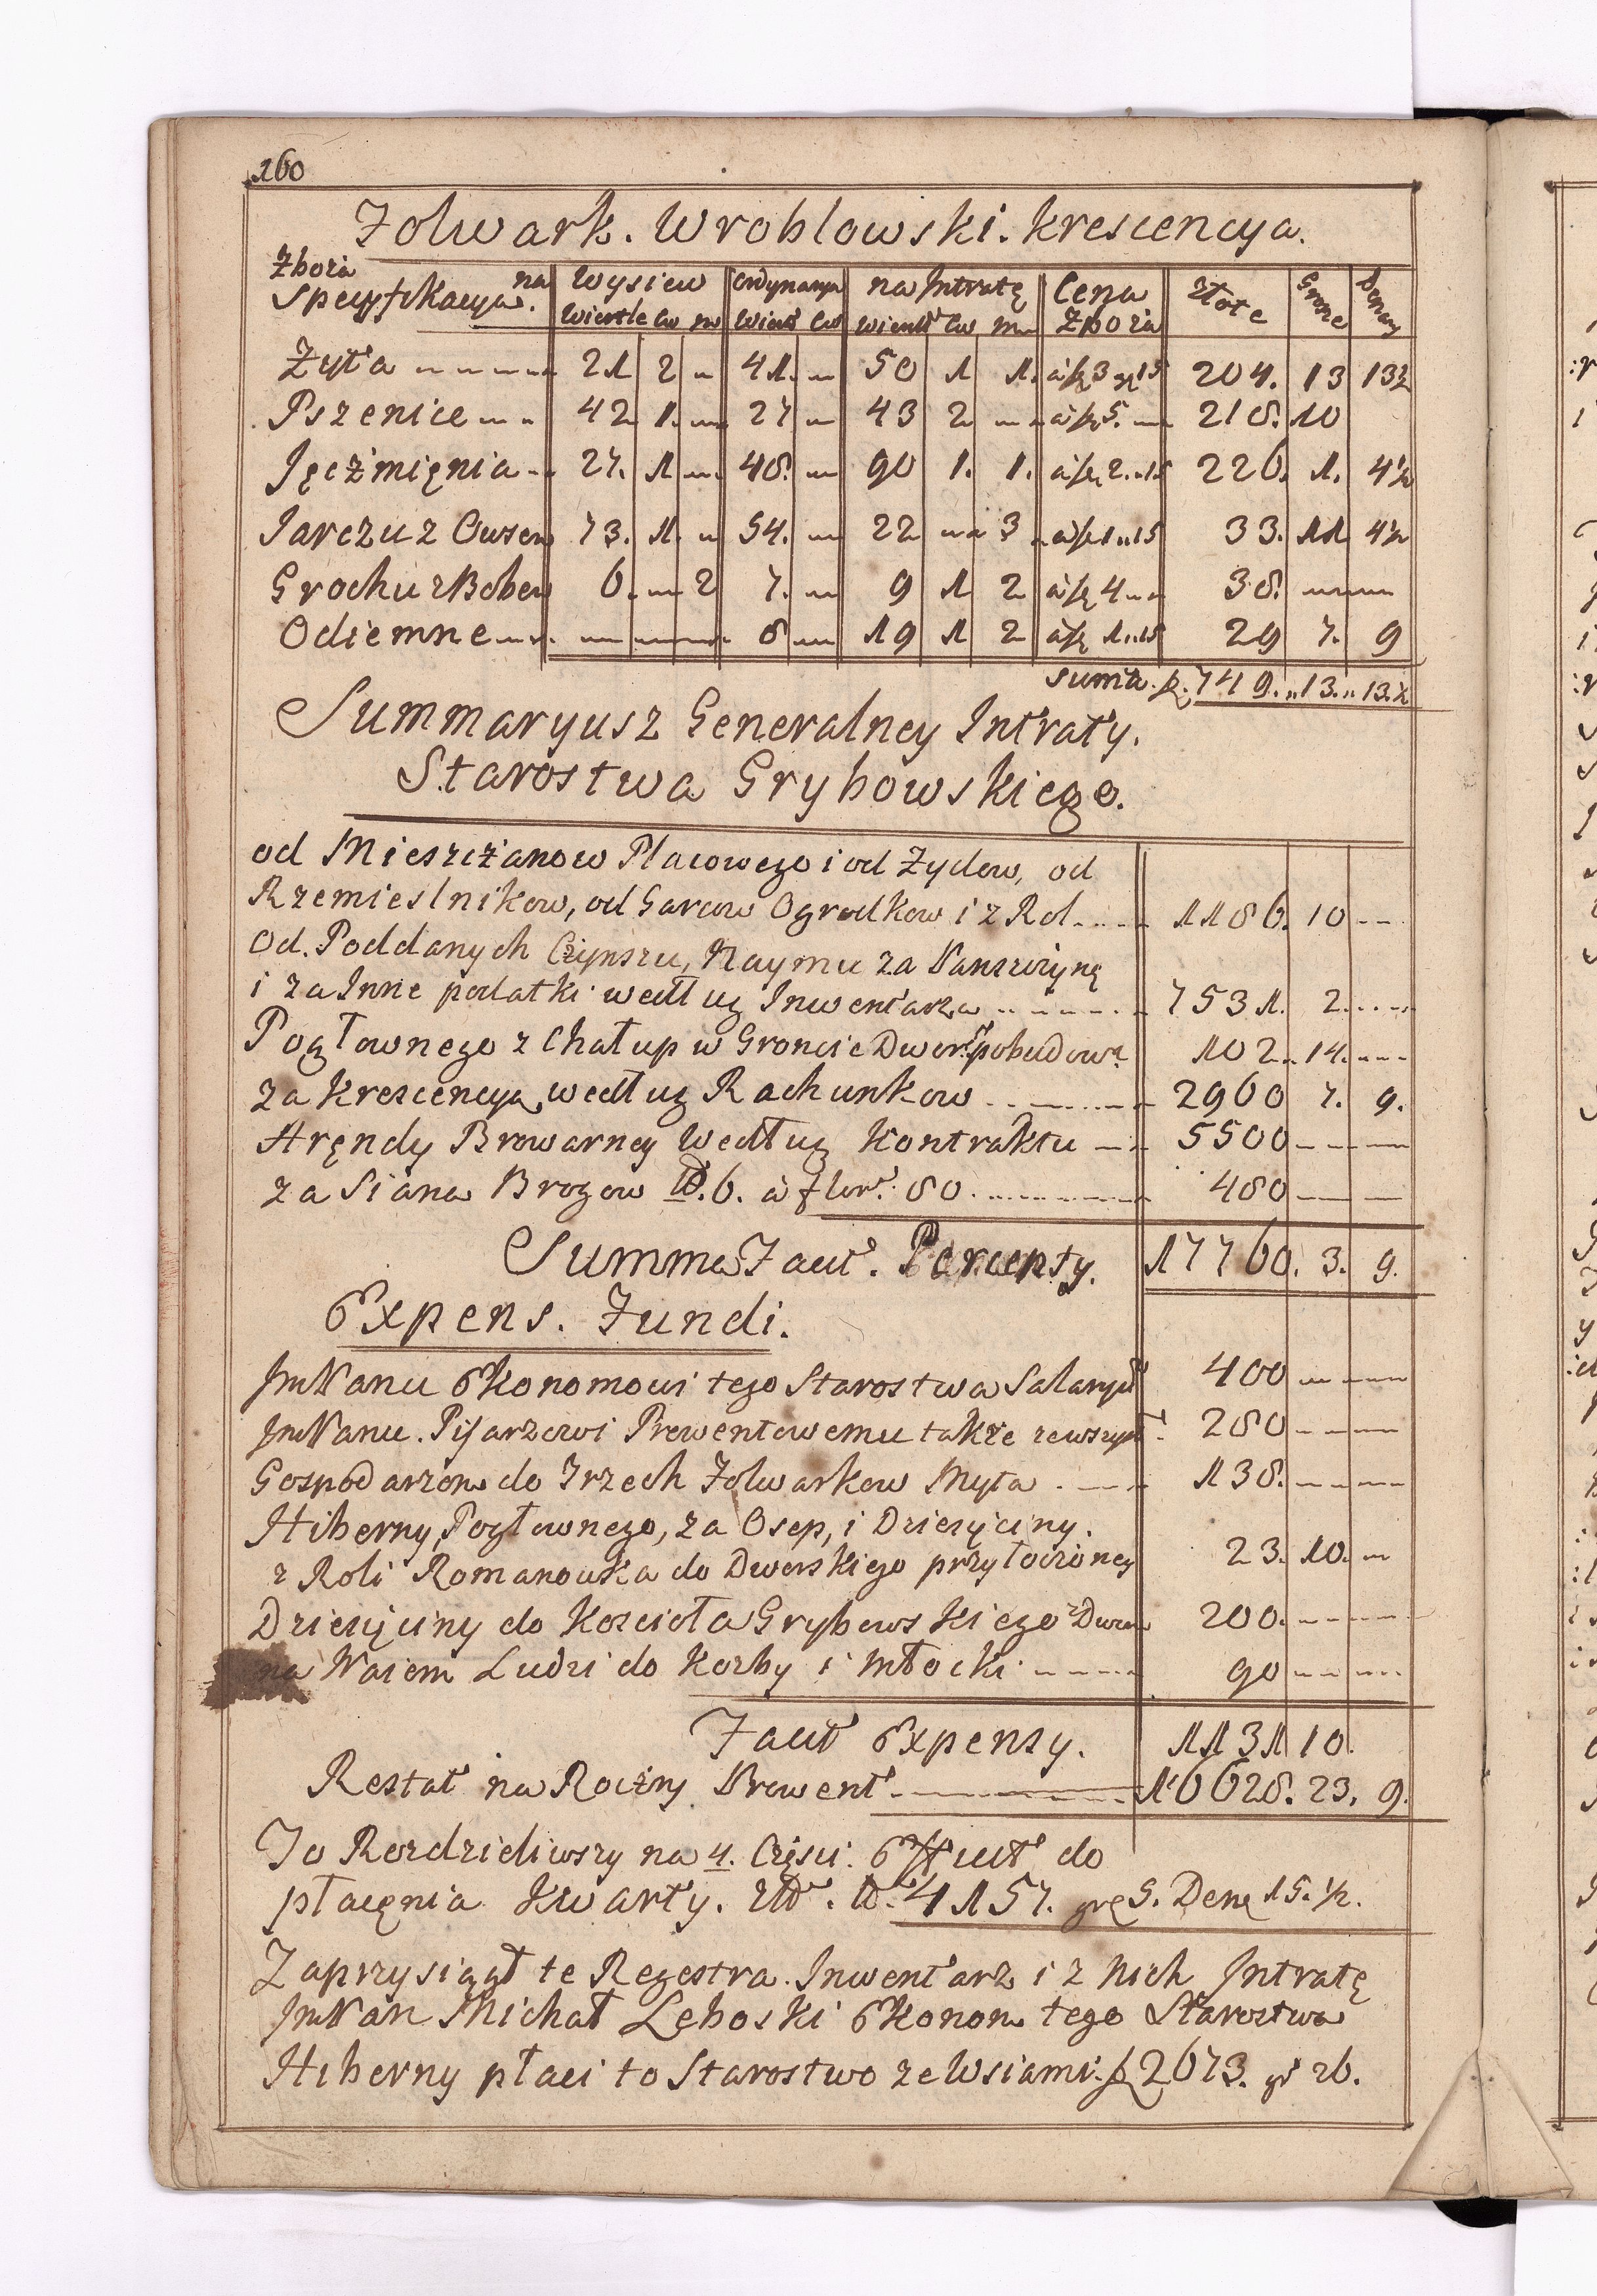 260
Folwark. Wroblowski. krescencya.
Zboża Specyfikacya. na Wysiew Ordynarya na Intratę Cena Zboża Złote Grosze Denary
Wiertle Cw m Wiert Cw Wiertl Cw m
Żyta 21 2 41. 50 1 1. à f 3 gr 15 204. 13 13½
Pszenice 42 1. 27 43 2 à f 5. 218. 10
Jęczmięnia 27. 1 48. 90 1. 1. à f 2..15 226. 1. 4½
Jarczu z Owsem 73. 1. 54. 22 3 à f 1..15 33. 11 4½
Grochu z Bobem 6. 2 7. 9 1 2 à f 4 38.
Odiemne 8 19 1 2 à f 1..15 29 7. 9
Summa. f. 749...13...13.½
Summaryusz Generalney Intraty.
Starostwa Grybowskiego.
od Mieszczanow Placowego i od Zydow, od
Rzemieslnikow, od Garcow Ogrodkow i z Rol 1186. 10
Od. Poddanych Czynszu, Naymu za Panszczyznę
i za Inne podatki według Inwentarza 7531. 2.
Pogłownego z Chałup w Groncie Dwors pobudow: 102. 14.
za Krescencyą według Rachunkow 2960 7. 9.
Aręndy Browarney Według Kontraktu 5500
za Siana Brogow No. 6. à flor: 80. 480
Summa Facit. Percepty. 17760. 3. 9.
Expens. Fundi.
JmPanu Ekonomowi tego Starostwa Salaryi 400
JmPanu. Pisarzowi Prowentowemu także zewszyst 280
Gospodarzom do Trzech Folwarkow Myta 138.
Hiberny, Pogłownego, za Osep, i Dziesięciny.
z Roli Romanowska do Dworskiego przyłoczoney 23. 10.
Dziesięciny do Koscioła Grybowskiego z Dwor 200.
na Naiem Ludzi do Kozby i Młocki 90
Facit Expensy. 1131 10.
Restat na Roczny Prowent 16628. 23. 9.
To Rozdzieliwszy na 4. Częsci. Efficit do
płacęnia Kwarty. No. 4157. gr 5. Den 15.½.
Zaprzysiągł te Regestra. Inwentarz i z nich Intratę
JmPan Michał Lęboski Ekonom tego Starostwa
Hiberny płaci to Starostwo ze Wsiami. f 2673. gr 26.